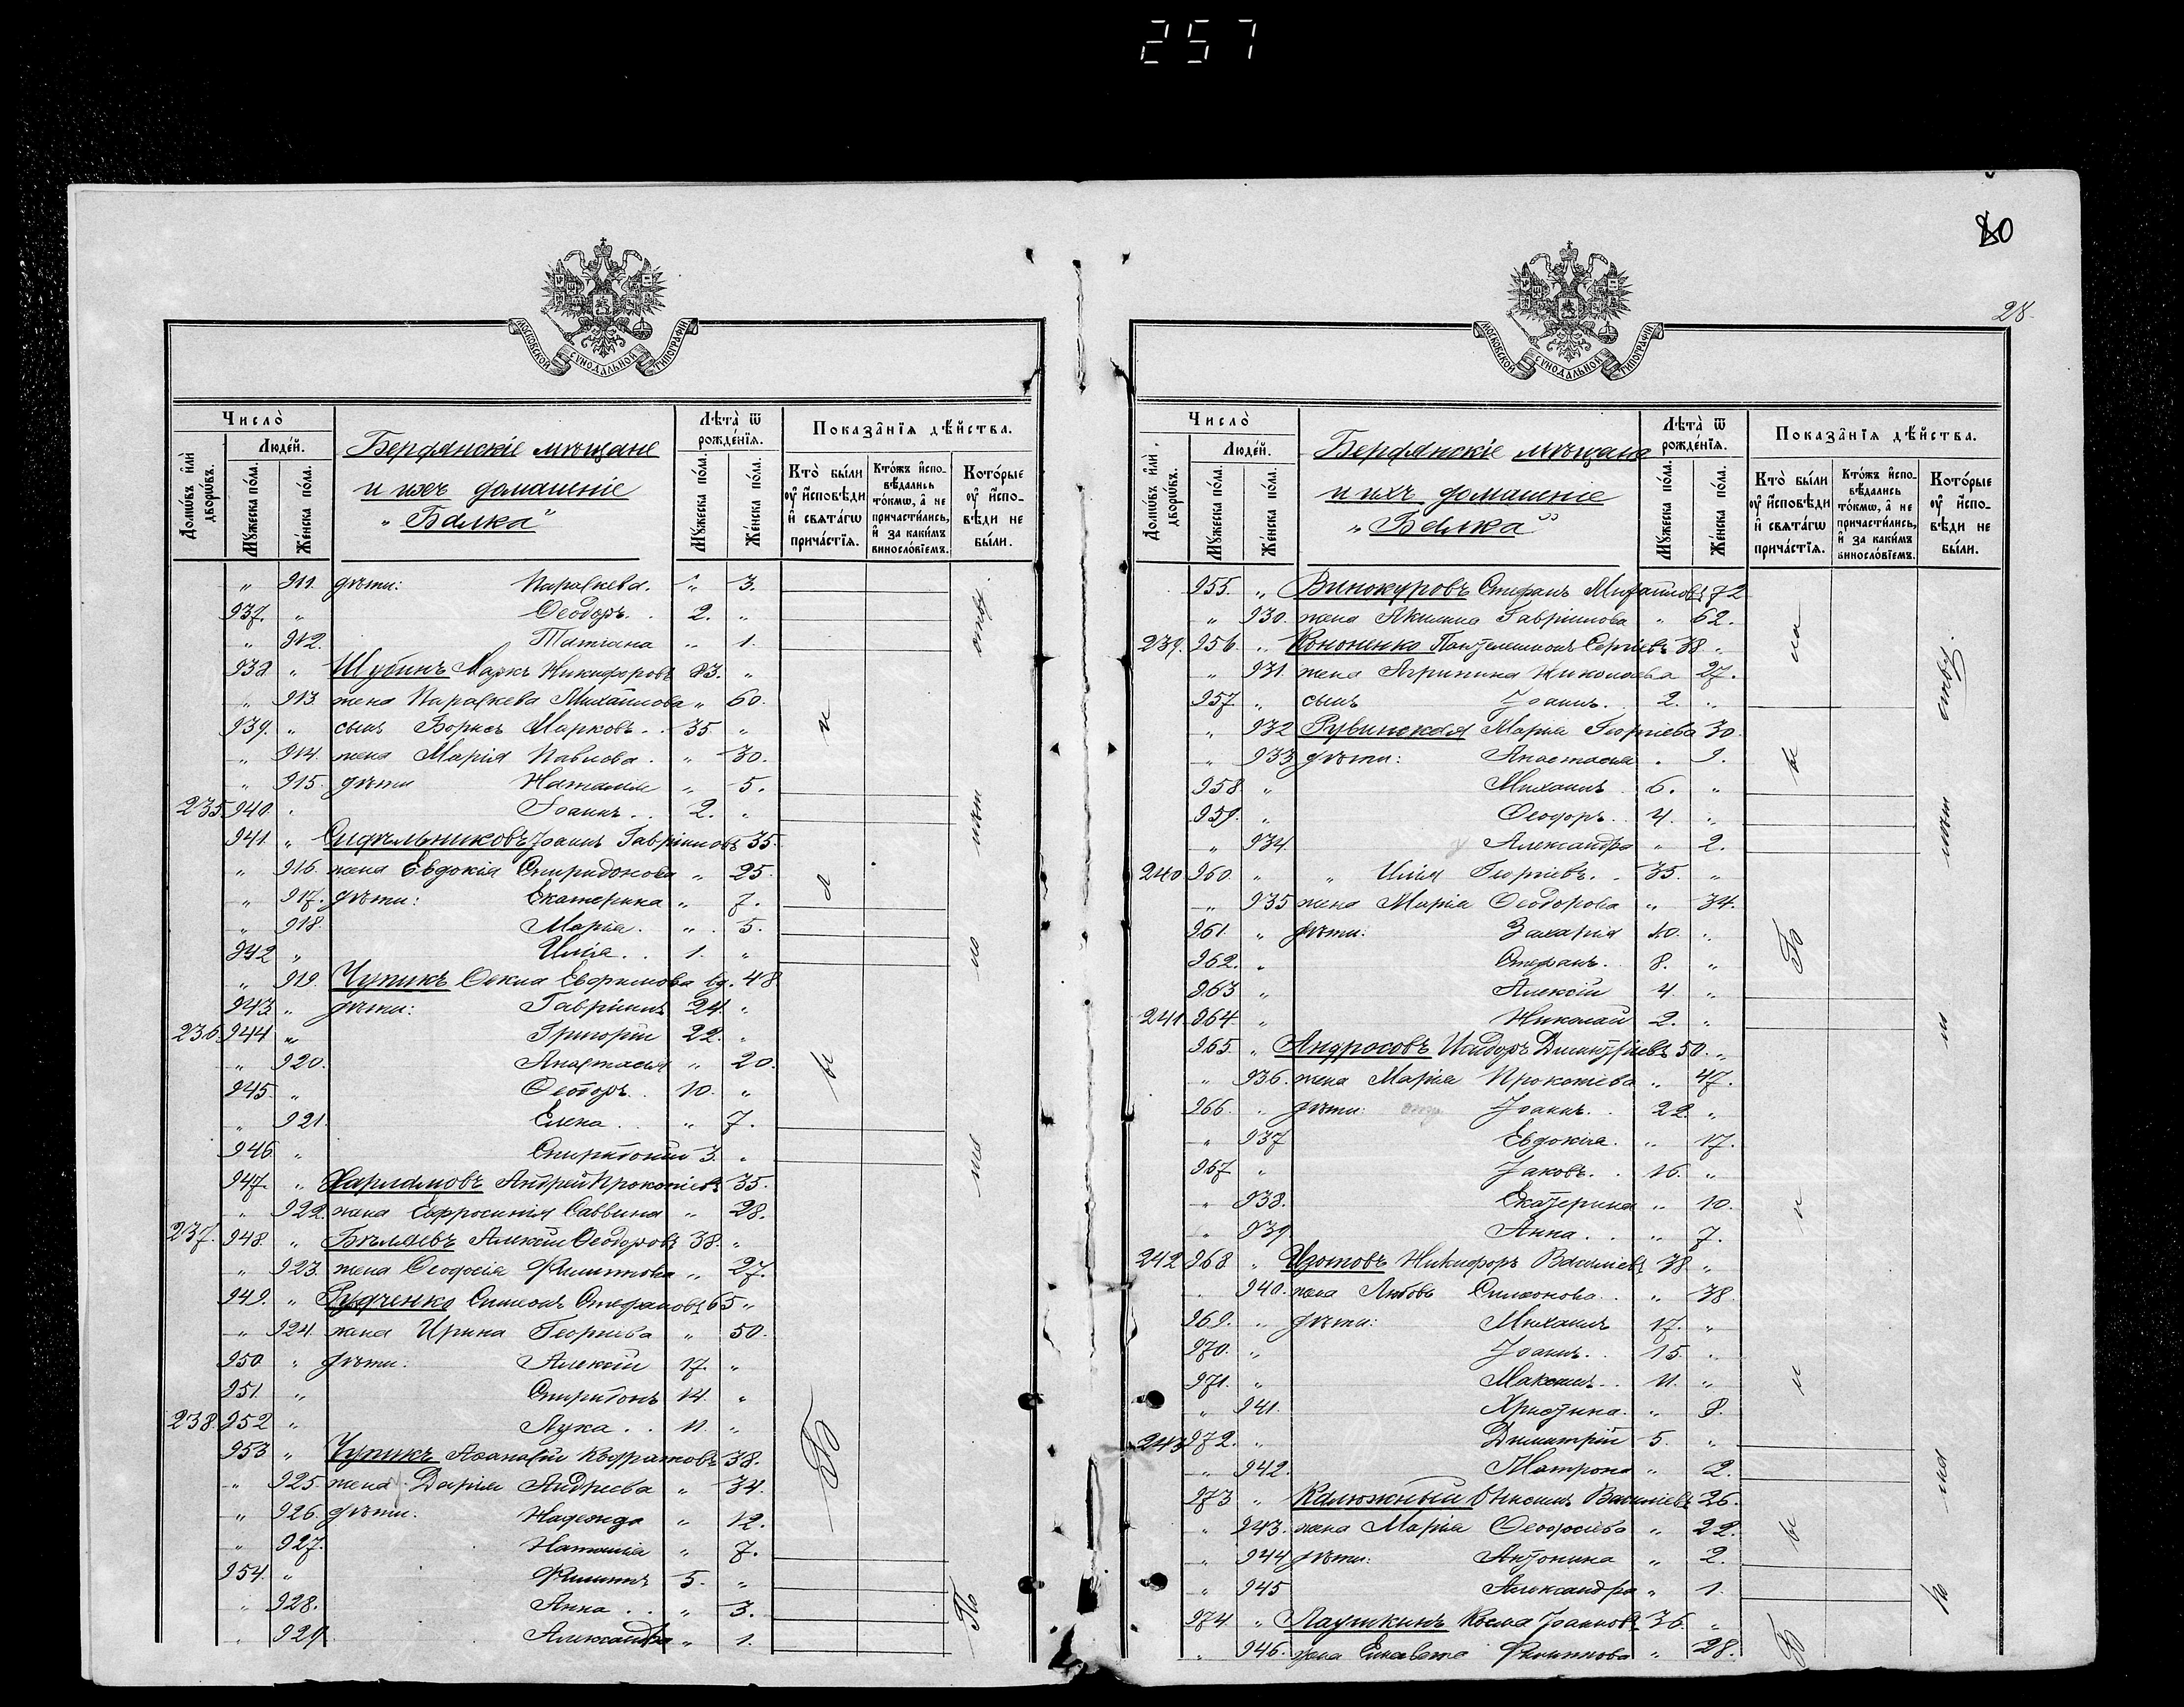 257
80
28.
МОСКОВСКОЙ СѴНОДАЛЬНОЙ ТИПОГРАФІИ
Число̀
Людéй.
Домѡ́въ и҆лѝ дворѡ́въ.
Мꙋ́жеска по́ла.
Же́нска по́ла.
Бердянскіе мѣщане
и ихъ домашніе
„Балка"
Лѣта̀ ѿ рожде́нїѧ.
Мꙋ́жеска по́ла.
Же́нска по́ла.
Показа̑нїѧ дѣ́йства.
Кто̀ бы́ли ᲂу҆ и҆сповѣ́ди и҆ свѧта́гѡ прича́стїѧ.
Кто́жъ и҆сповѣ́дались то́кмѡ, а҆ не причасти́лись, и҆ за каки́мъ винословїемъ.
Кото́рые ᲂу҆ и҆сповѣ́ди не бы́ли.
„ 911. дѣти: Параскева. „ 3.
937. „ Ѳеодоръ. 2. „
„ 912. Татіана „ 1.
938 „ Шубинъ Маркъ Никифоровъ 83. „
„ 913. жена Параскева Михайлова „ 60.
939. „ сынъ Борисъ Марковъ. 35. „
„ 914. жена Марія Павлова. „ 30.
„ 915. дѣти Наталія „ 5.
235. 940. „ Іоаннъ. 2. „
941. „ Сидѣльниковъ Іоаннъ Гавріиловъ 35.
„ 916. жена Евдокія Спиридонова „ 25.
„ 917. дѣти: Екатерина „ 7.
„ 918. Марія. „ 5.
942 „ Илія. 1. „
„ 919. Чупикъ Ѳекла Евфимова вд. 48
943. „ дѣти: Гавріилъ 24. „
236. 944 „ Григорій 22. „
„ 920. Анастасія „ 20.
945. „ Ѳеодоръ. 10. „
„ 921. Елена. „ 7.
946. „ Спиридонъ 3. „
947. „ Харламовъ Андрей Прокопіевъ 35.
„ 922. жена Евфросинія Саввина „ 28.
237. 948. „ Бѣляевъ Алексій Ѳеодоровъ 38. „
„ 923. жена Ѳеодосія Филиппова „ 27.
949. „ Рудченко Симеонъ Стефановъ 65 „
„ 924. жена Ирина Георгіева „ 50.
950. „ дѣти: Алексій 17. „
951. „ Спиридонъ 14. „
238. 952 „ Лука. 11. „
953. „ Чупикъ Аѳанасій 38.
„ 925. жена Дарія Андреева „ 34.
„ 926. дѣти: Надежда „ 12.
„ 927. Наталія „ 7.
954. „ Филиппъ 5. „
„ 928. Анна. „ 3.
„ 929. Александра „ 1.
МОСКОВСКОЙ СѴНОДАЛЬНОЙ ТИПОГРАФІИ
Число̀
Людéй.
Домѡ́въ и҆лѝ дворѡ́въ.
Мꙋ́жеска по́ла.
Же́нска по́ла.
Бердянскіе мѣщане
и ихъ домашніе
„Балка"
Лѣта̀ ѿ рожде́нїѧ.
Мꙋ́жеска по́ла.
Же́нска по́ла.
Показа̑нїѧ дѣ́йства.
Кто̀ бы́ли ᲂу҆ и҆сповѣ́ди и҆ свѧта́гѡ прича́стїѧ.
Кто́жъ и҆сповѣ́дались то́кмѡ, а҆ не причасти́лись, и҆ за каки́мъ винословїемъ.
Кото́рые ᲂу҆ и҆сповѣ́ди не бы́ли.
955. „ Винокуровъ Стефанъ Михайловъ 72
„ 930. жена Акилина Гавріилова „ 62.
239. 956. „ Кононенко Пантелеимонъ Сергіевъ 38 „
„ 931. жена Агрипина Николаева 27.
957 „ сынъ Іоаннъ. 2. „
„ 932 Рувинская Марія Георгіева 30.
„ 933 дѣти: Анастасія „ 9.
958 „ Михаилъ 6. „
959. „ Ѳеодоръ. 4. „
„ 934. Александра „ 2.
240 960. „ „ Илія Георгіевъ. 35. „
„ 935 жена Марія Ѳеодорова „ 34.
961. „ дѣти: Захарія 10. „
962. „ Стефанъ. 8. „
963 „ Алексій 4. „
241. 964. „ Николай 2. „
965. „ Андросовъ Исидоръ Димитріевъ 50. „
„ 936. жена Марія Прокопіева „ 47.
966. „ дѣти: Іоаннъ. 22. „
„ 937 Евдокія. „ 17.
967 „ Іаковъ. 16. „
„ 938. Екатерина „ 10.
„ 939 Анна. „ 7.
242 968 „ Изотовъ Никифоръ Василіевъ 38 „
„ 940. жена Любовь Симеонова. „ 38.
969. „ дѣти: Михаилъ 17. „
970. „ Іоаннъ. 15. „
971. „ Максимъ. 11. „
„ 941. Христина. „ 8.
243 972. „ Димитрій 5. „
„ 942. Матрона „ 2.
973 „ Калюжный Василіевъ 26.
„ 943. жена Марія Ѳеодосіева „ 22.
„ 944 дѣти: Антонина „ 2.
„ 945 Александра „ 1.
974. „ Лаушкинъ Косма Іоанновъ 36. „
„ 946. жена Елисавета Филиппова „ 28.